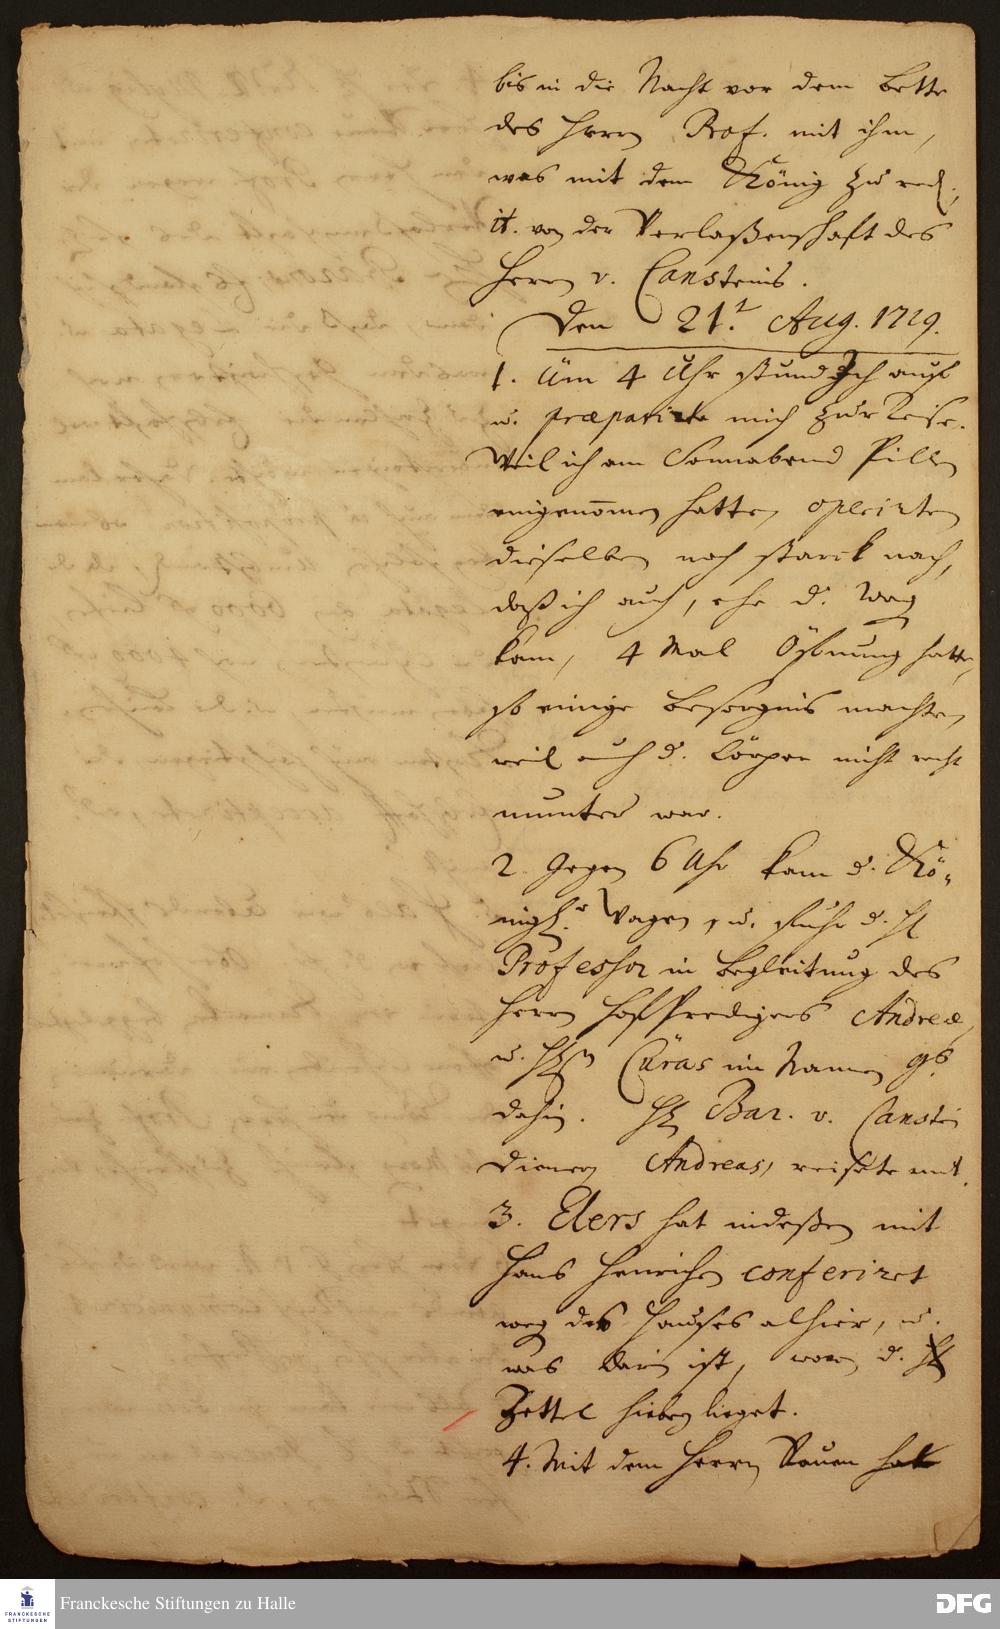 bis in die Nacht vor dem bette
des Herrn Prof. mit ihm,
was mit dem König zu red.,
it. von der Verlaßenschaft des
Herrn v. Cansteins.
Den 21.t Aug. 1719.
1. Um 4 Uhr stund Ich auf
u. præparirte mich zur Reise.
Weil ich am Sonnabend Pillen
eingenom̅en hatte, operirten
dieselben noch starck nach,
daß ich auch, ehe d. Wag
kam, 4 Mal Öffnung hatte,
so einige besorgnis machte,
weil auch d. Cörper nicht recht
munter war.
2. Gegen 6 Uhr kam d. Kö-
nigl. Wagen, u. fuhr d. H
Professor in begleitung des
Herrn HofPredigers Andreæ,
u. HEn Cüras im Namen
dahin. HE Bar. v. Canstei
diener, Andreas, reisete mit.
3. Elers hat indeßen mit
Hans Henrichen conferiret
weg des Hauses alhier, u.
was darin ist, wovon d.
Zettel hiebey lieget.
4. Mit dem Herrn Rauen hat
Franckesche Stiftungen zu Halle
FRANCKESCHE
STIFTUNGEN
DFG